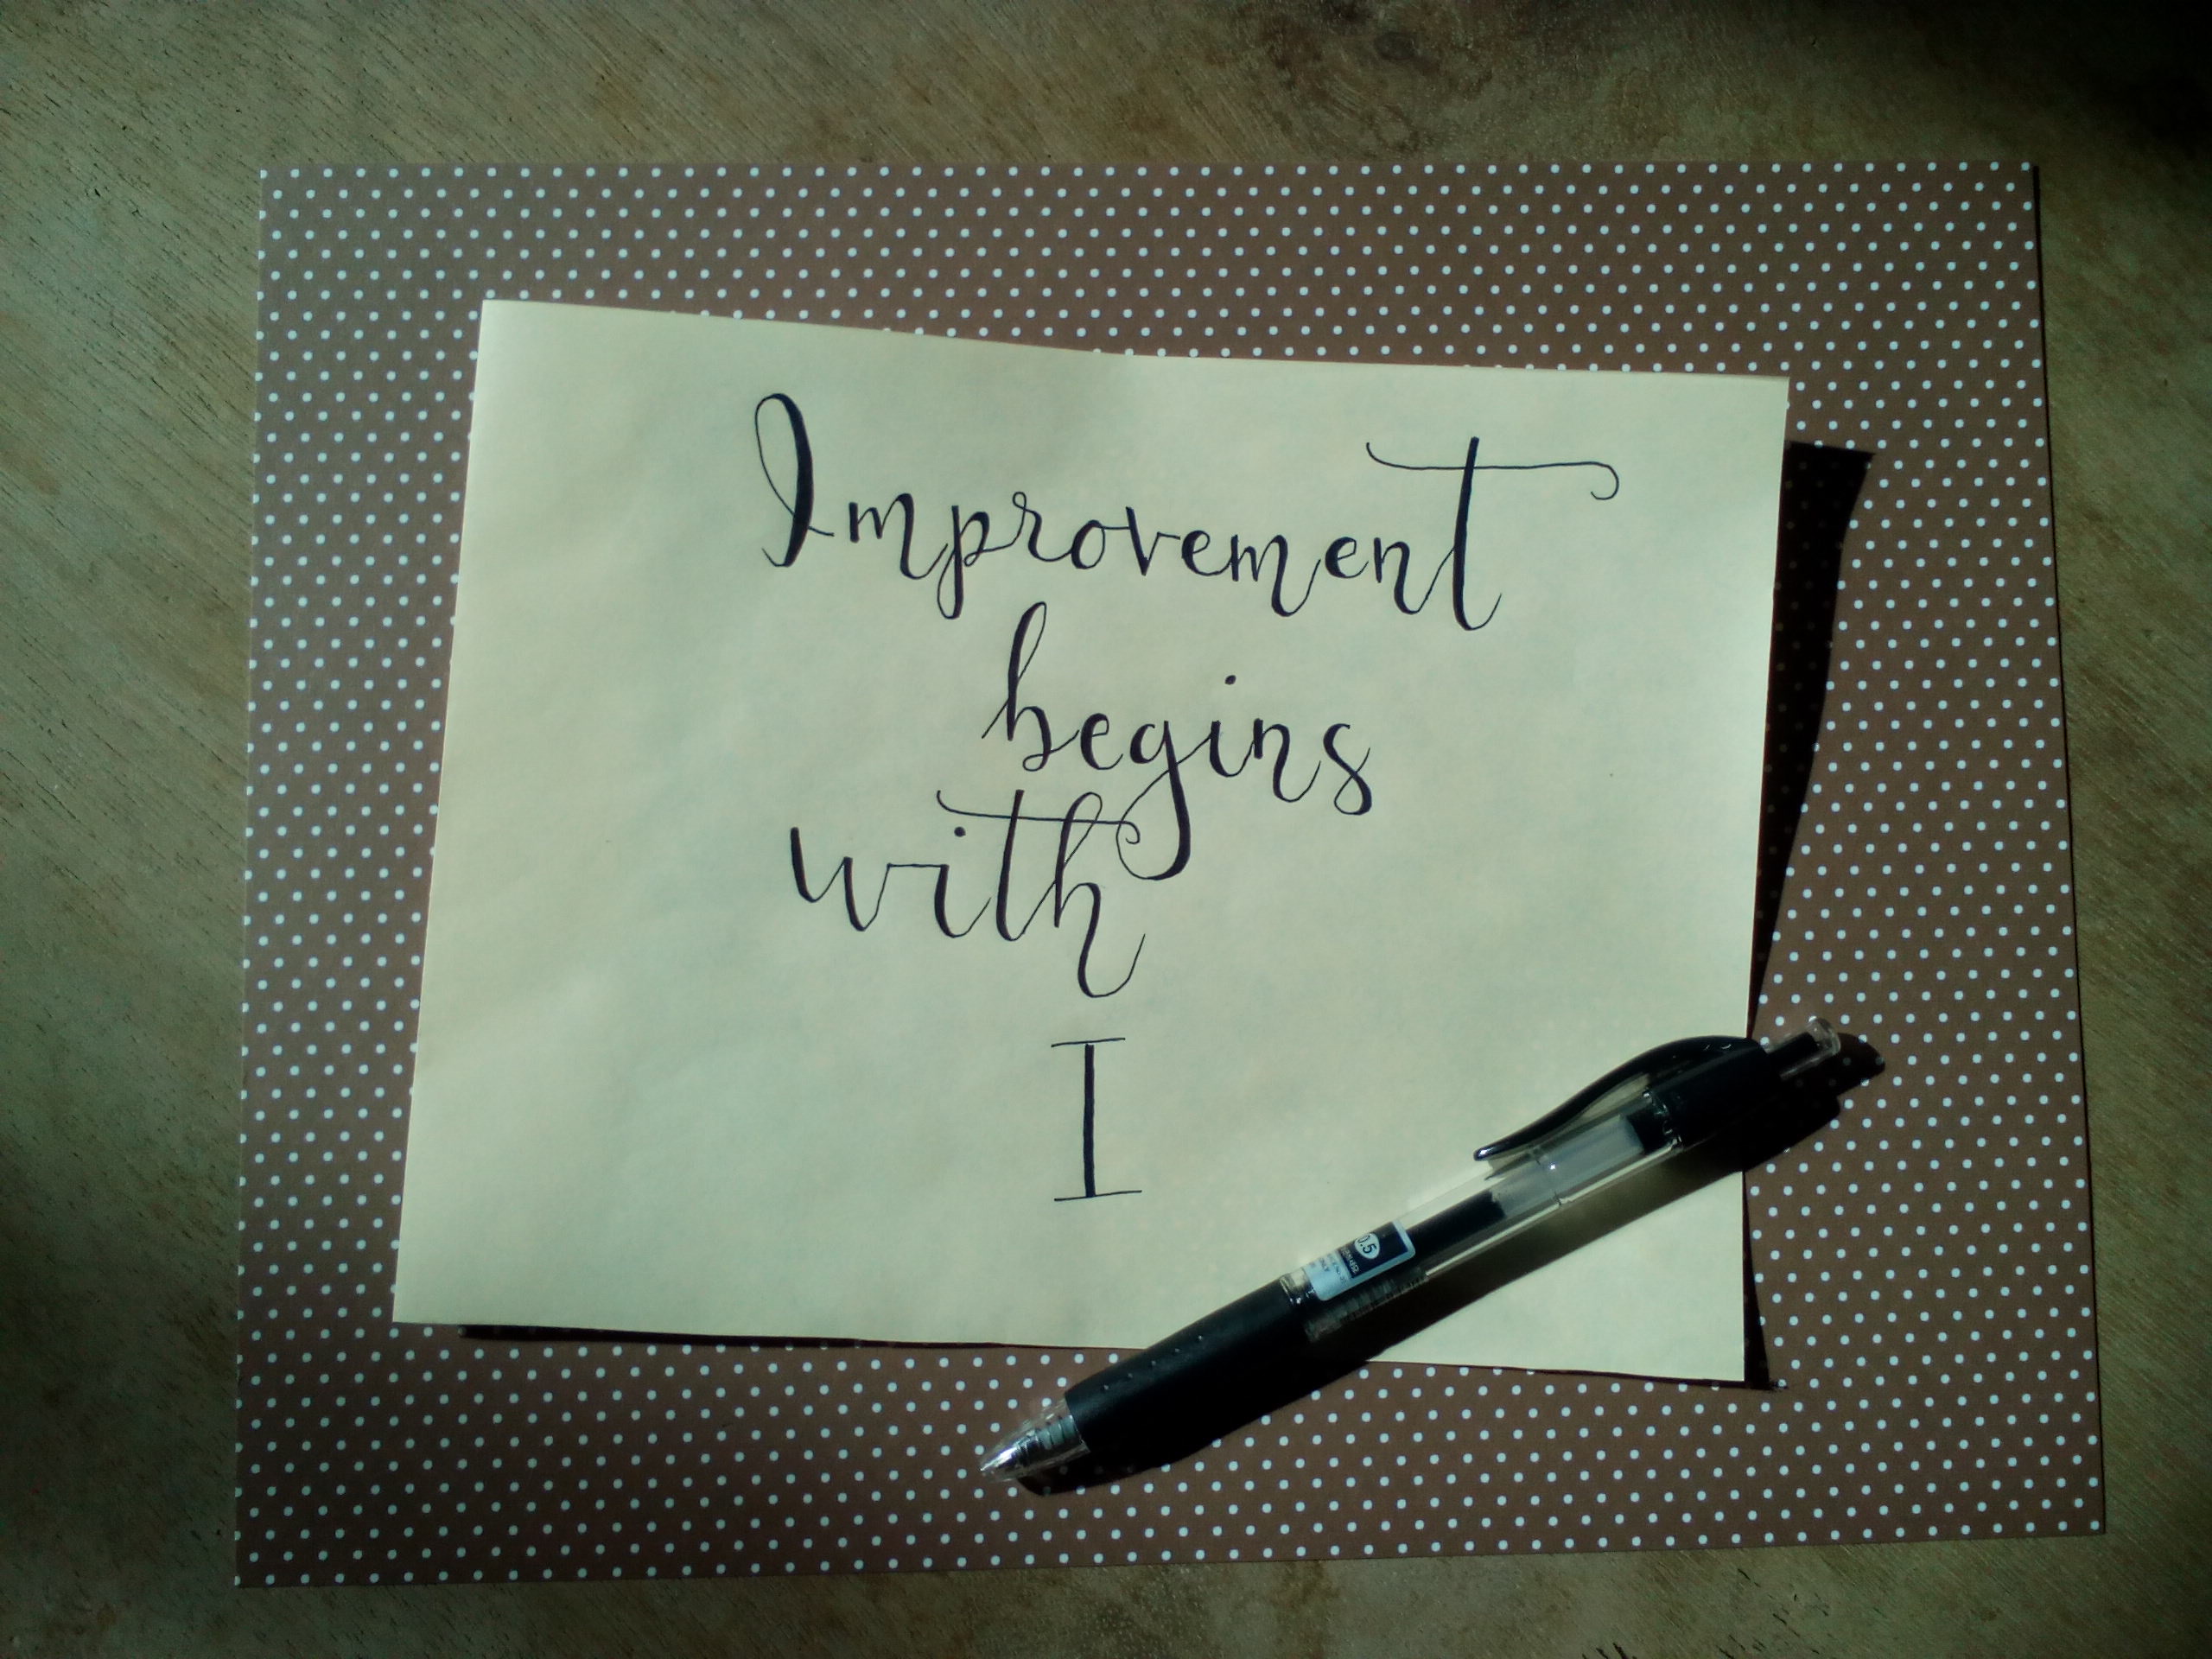 Improvement
begins
with
I
0.5